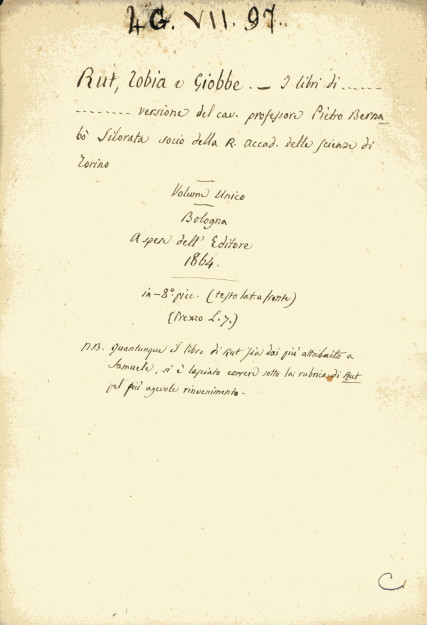 4G. VII. 97.
Rut, Tobia e Giobbe. — I libri di ......
......... versione del cav. professore Pietro Berna_
bò Silorata socio della R. Accad. delle scienze di
Torino
Volume Unico
Bologna
A spese dell' Editore
1864.
in-8° picc. (testo lat. a fronte)
(Prezzo L. 7.)
NB. Quantunque il libro di Rut sia dai più attribuito a
Samuele, si è lasciato correre sotto la rubrica di Rut
pel più agevole rinvenimento -
C